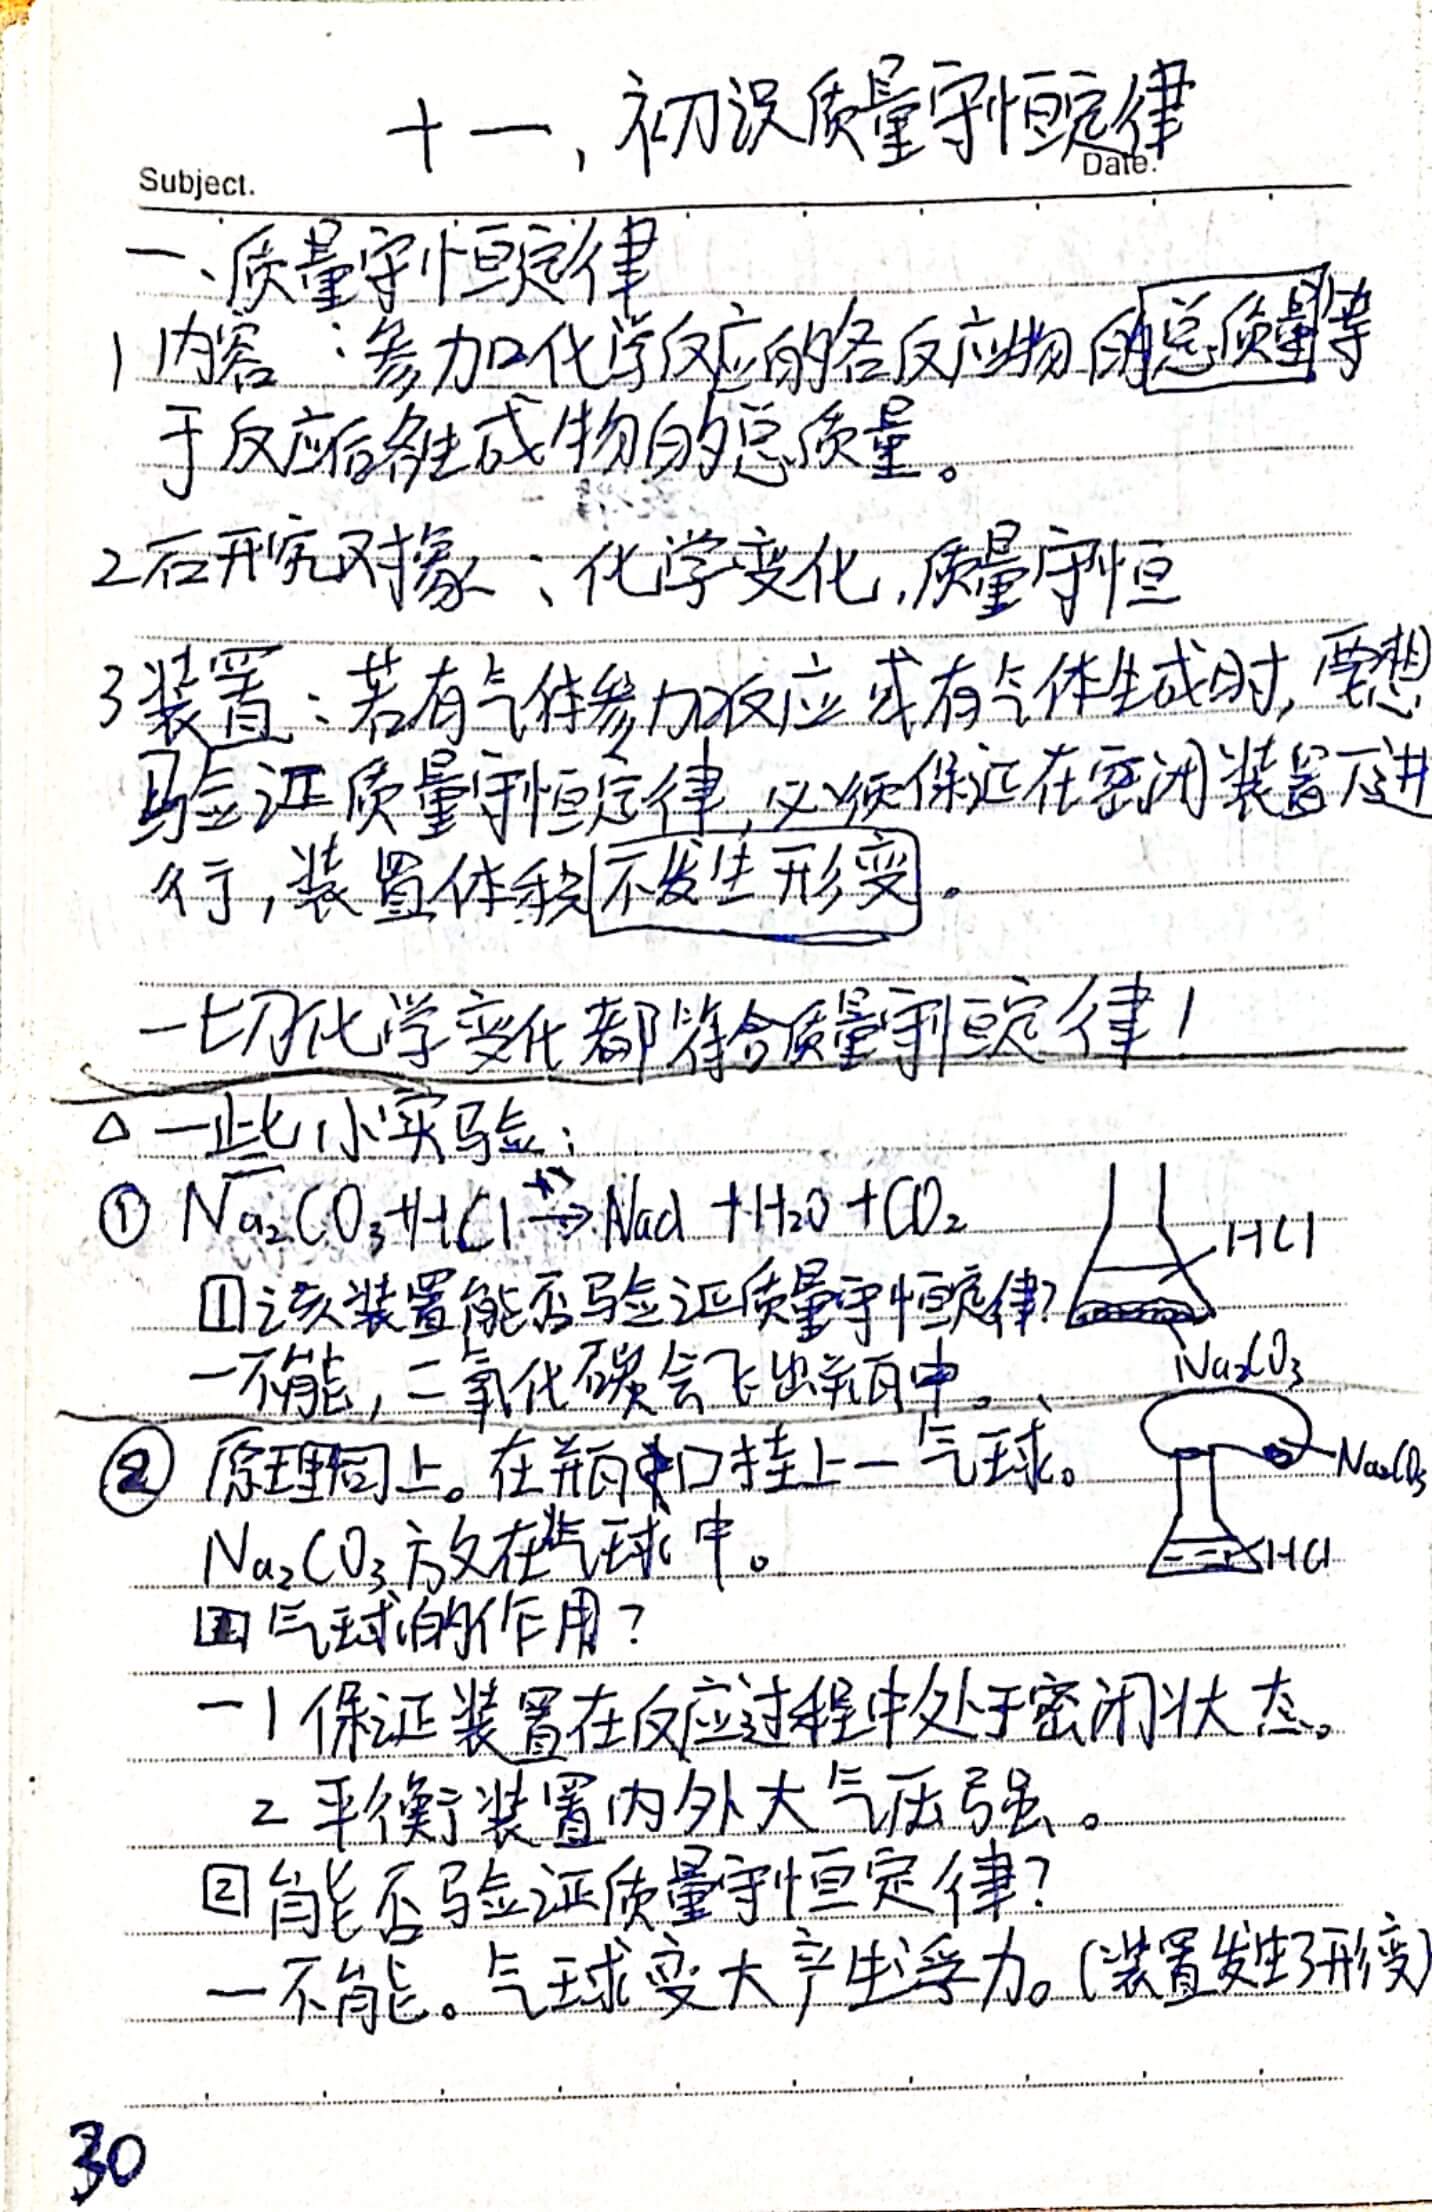 十一、初识质量守恒定律
Subject.
Date.
一、质量守恒定律
1 内容：参加化学反应的各反应物的总质量等
于反应后各生成物的总质量。
2 研究对象：化学变化，质量守恒
3 装置：若有气体参加反应或有气体生成时，要想
验证质量守恒定律，必须保证在密闭装置下进
行，装置体积不发生形变。
一切化学变化都符合质量守恒定律！
△一些小实验：
① Na₂CO₃+HCl→NaCl+H₂O+CO₂
HCl
1 该装置能否验证质量守恒定律？
Na₂CO₃
—不能，二氧化碳会飞出瓶中。
② 原理同上。在瓶口挂上一气球。
Na₂CO₃
Na₂CO₃放在气球中。
HCl
1 气球的作用？
—1 保证装置在反应过程中处于密闭状态。
2 平衡装置内外大气压强。
2 能否验证质量守恒定律？
—不能。气球变大产生浮力。（装置发生了形变）
30